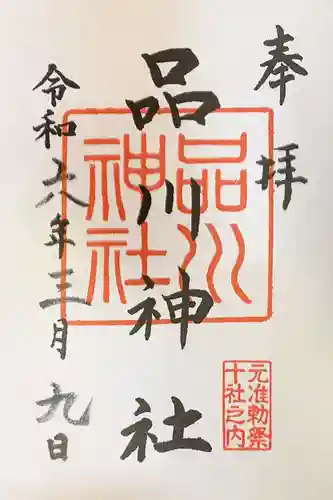 奉拝
品川神社
品川神社
元准勅祭
十社之内
令和六年三月九日